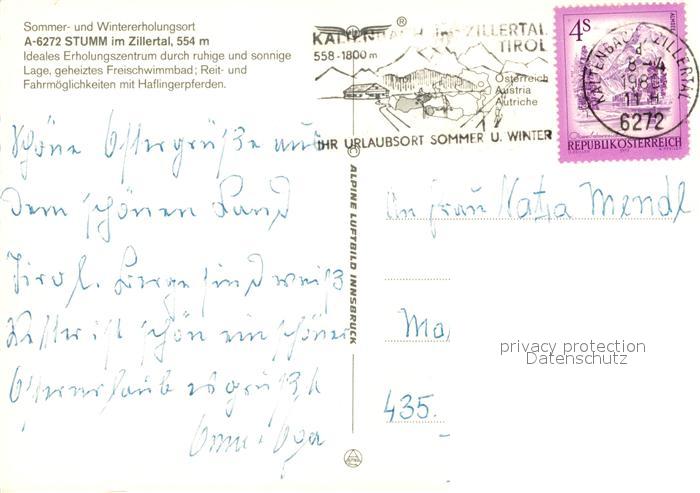 Sommer- und Wintererholungsort
A-6272 STUMM im Zillertal, 554 m
Ideales Erholungszentrum durch ruhige und sonnige
Lage, geheiztes Freischwimmbad; Reit- und
Fahrmöglichkeiten mit Haflingerpferden.
®
KALTENBACH IM ZILLERTAL
TIROL
558-1800 m
Österreich
Austria
Autriche
IHR URLAUBSORT SOMMER U. WINTER
4S
REPUBLIK ÖSTERREICH
KALTENBACH, ZILLERTAL
6272
Schöne Ostergrüße aus
dem schönen Land
Tirol. Berge sind weiß
Wetter ist schön ein schöner
Osterurlaub es grüßt
Omi
ALPINE LUFTBILD INNSBRUCK
An Frau Katja Mendl
Ma
435.
privacy protection
Datenschutz